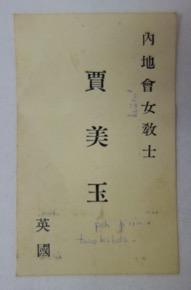 內地會女教士
賈美玉
英國